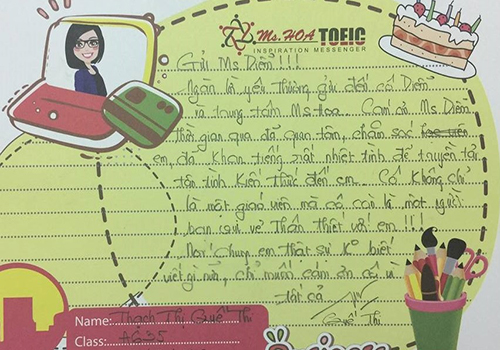 Ms. HOA TOEIC
INSPIRATION MESSENGER
Gửi Ms Diễm !!!
Ngàn lời yêu thương gửi đến cô Diễm
và trung tâm Ms Hoa. Cảm ơn Ms Diễm
thời gian qua đã quan tâm, chăm sóc
em, đã khan tiếng, rất nhiệt tình để truyền tải
tận tình kiến thức đến em. Cô không chỉ
là một giáo viên mà cô còn là một người
bạn vui vẻ thân thiết với em !!!
Nói chung em thật sự ko biết
viết gì nữa, chỉ muốn cảm ơn cô vì
tất cả
Quế Thi
Name: Thạch Thị Quế Thi
Class: AG35